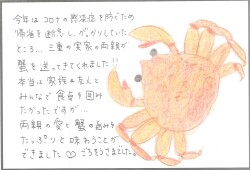 今年はコロナの感染症を防ぐため
帰省を断念し、がっかりしていた
ところ… 三重の実家の両親が
蟹を送ってきてくれました!!
本当は家族全員と
みんなで食卓を囲み
たかったですが…
両親の愛と蟹の旨みを
たっぷりと味わうことが
できました♡ごちそうさまでした。